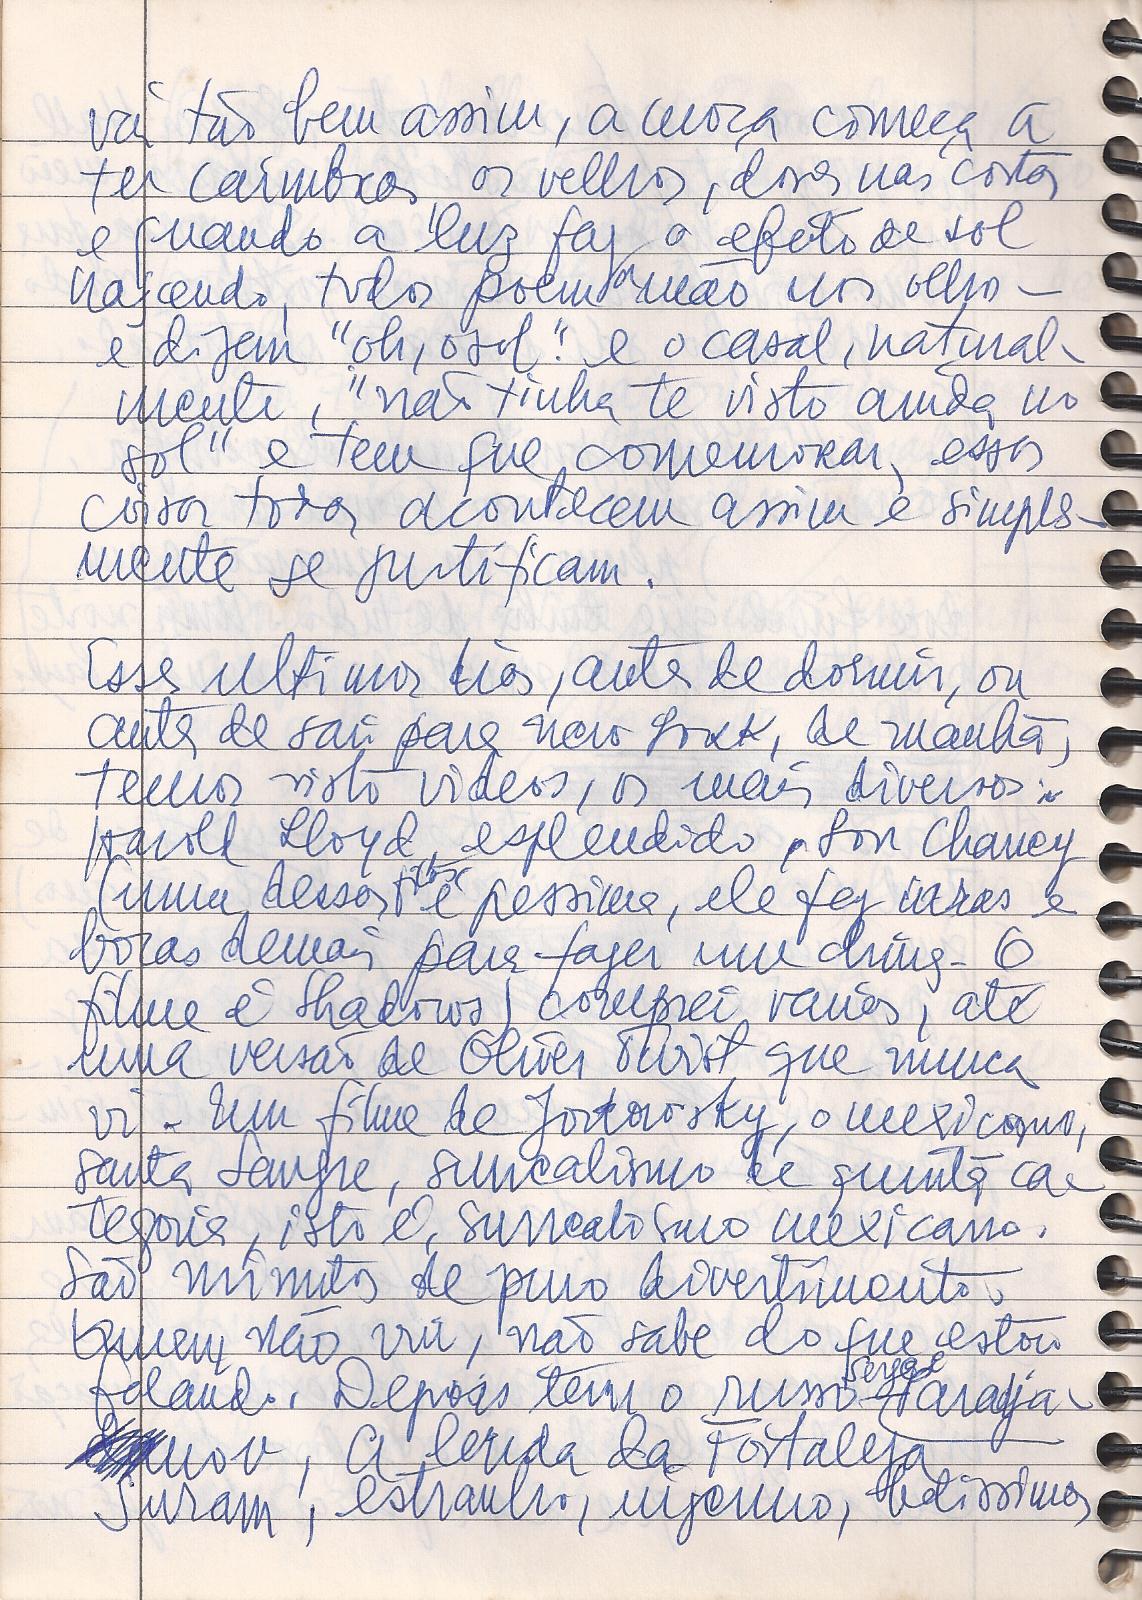 vai tão bem assim, a moça começa a
ter caimbras os velhos, dores nas costas
e quando a luz faz o efeito de sol
nascendo, todos poem a mão nos olhos –
e dizem "oh, o sol!" e o casal, natural-
mente, "não tinha te visto ainda no
sol" e tem que comemorar, essas
coisas todas acontecem assim e simples-
mente se justificam.
Esses ultimos dias, antes de dormir, ou
antes de sair para New York, de manhã,
temos visto videos, os mais diversos:
Harold Lloyd, esplendido, Lon Chaney
(num desses é pessimo, ele faz caras e
bocas demais para fazer um O
filme é Shadows) comprei varios, até
uma versão de Oliver Twist que nunca
vi – Um filme de Jodorowsky, o mexicano,
Santa Sangre, surrealismo de quinta ca-
tegoria, isto é, surrealismo mexicano.
São minutos de puro divertimento.
Quem não viu, não sabe do que estou
falando. Depois tem o russo Sergei Paradja-
nov, A lenda da Fortaleza
Suram, estranho, ingenuo, belissimo,